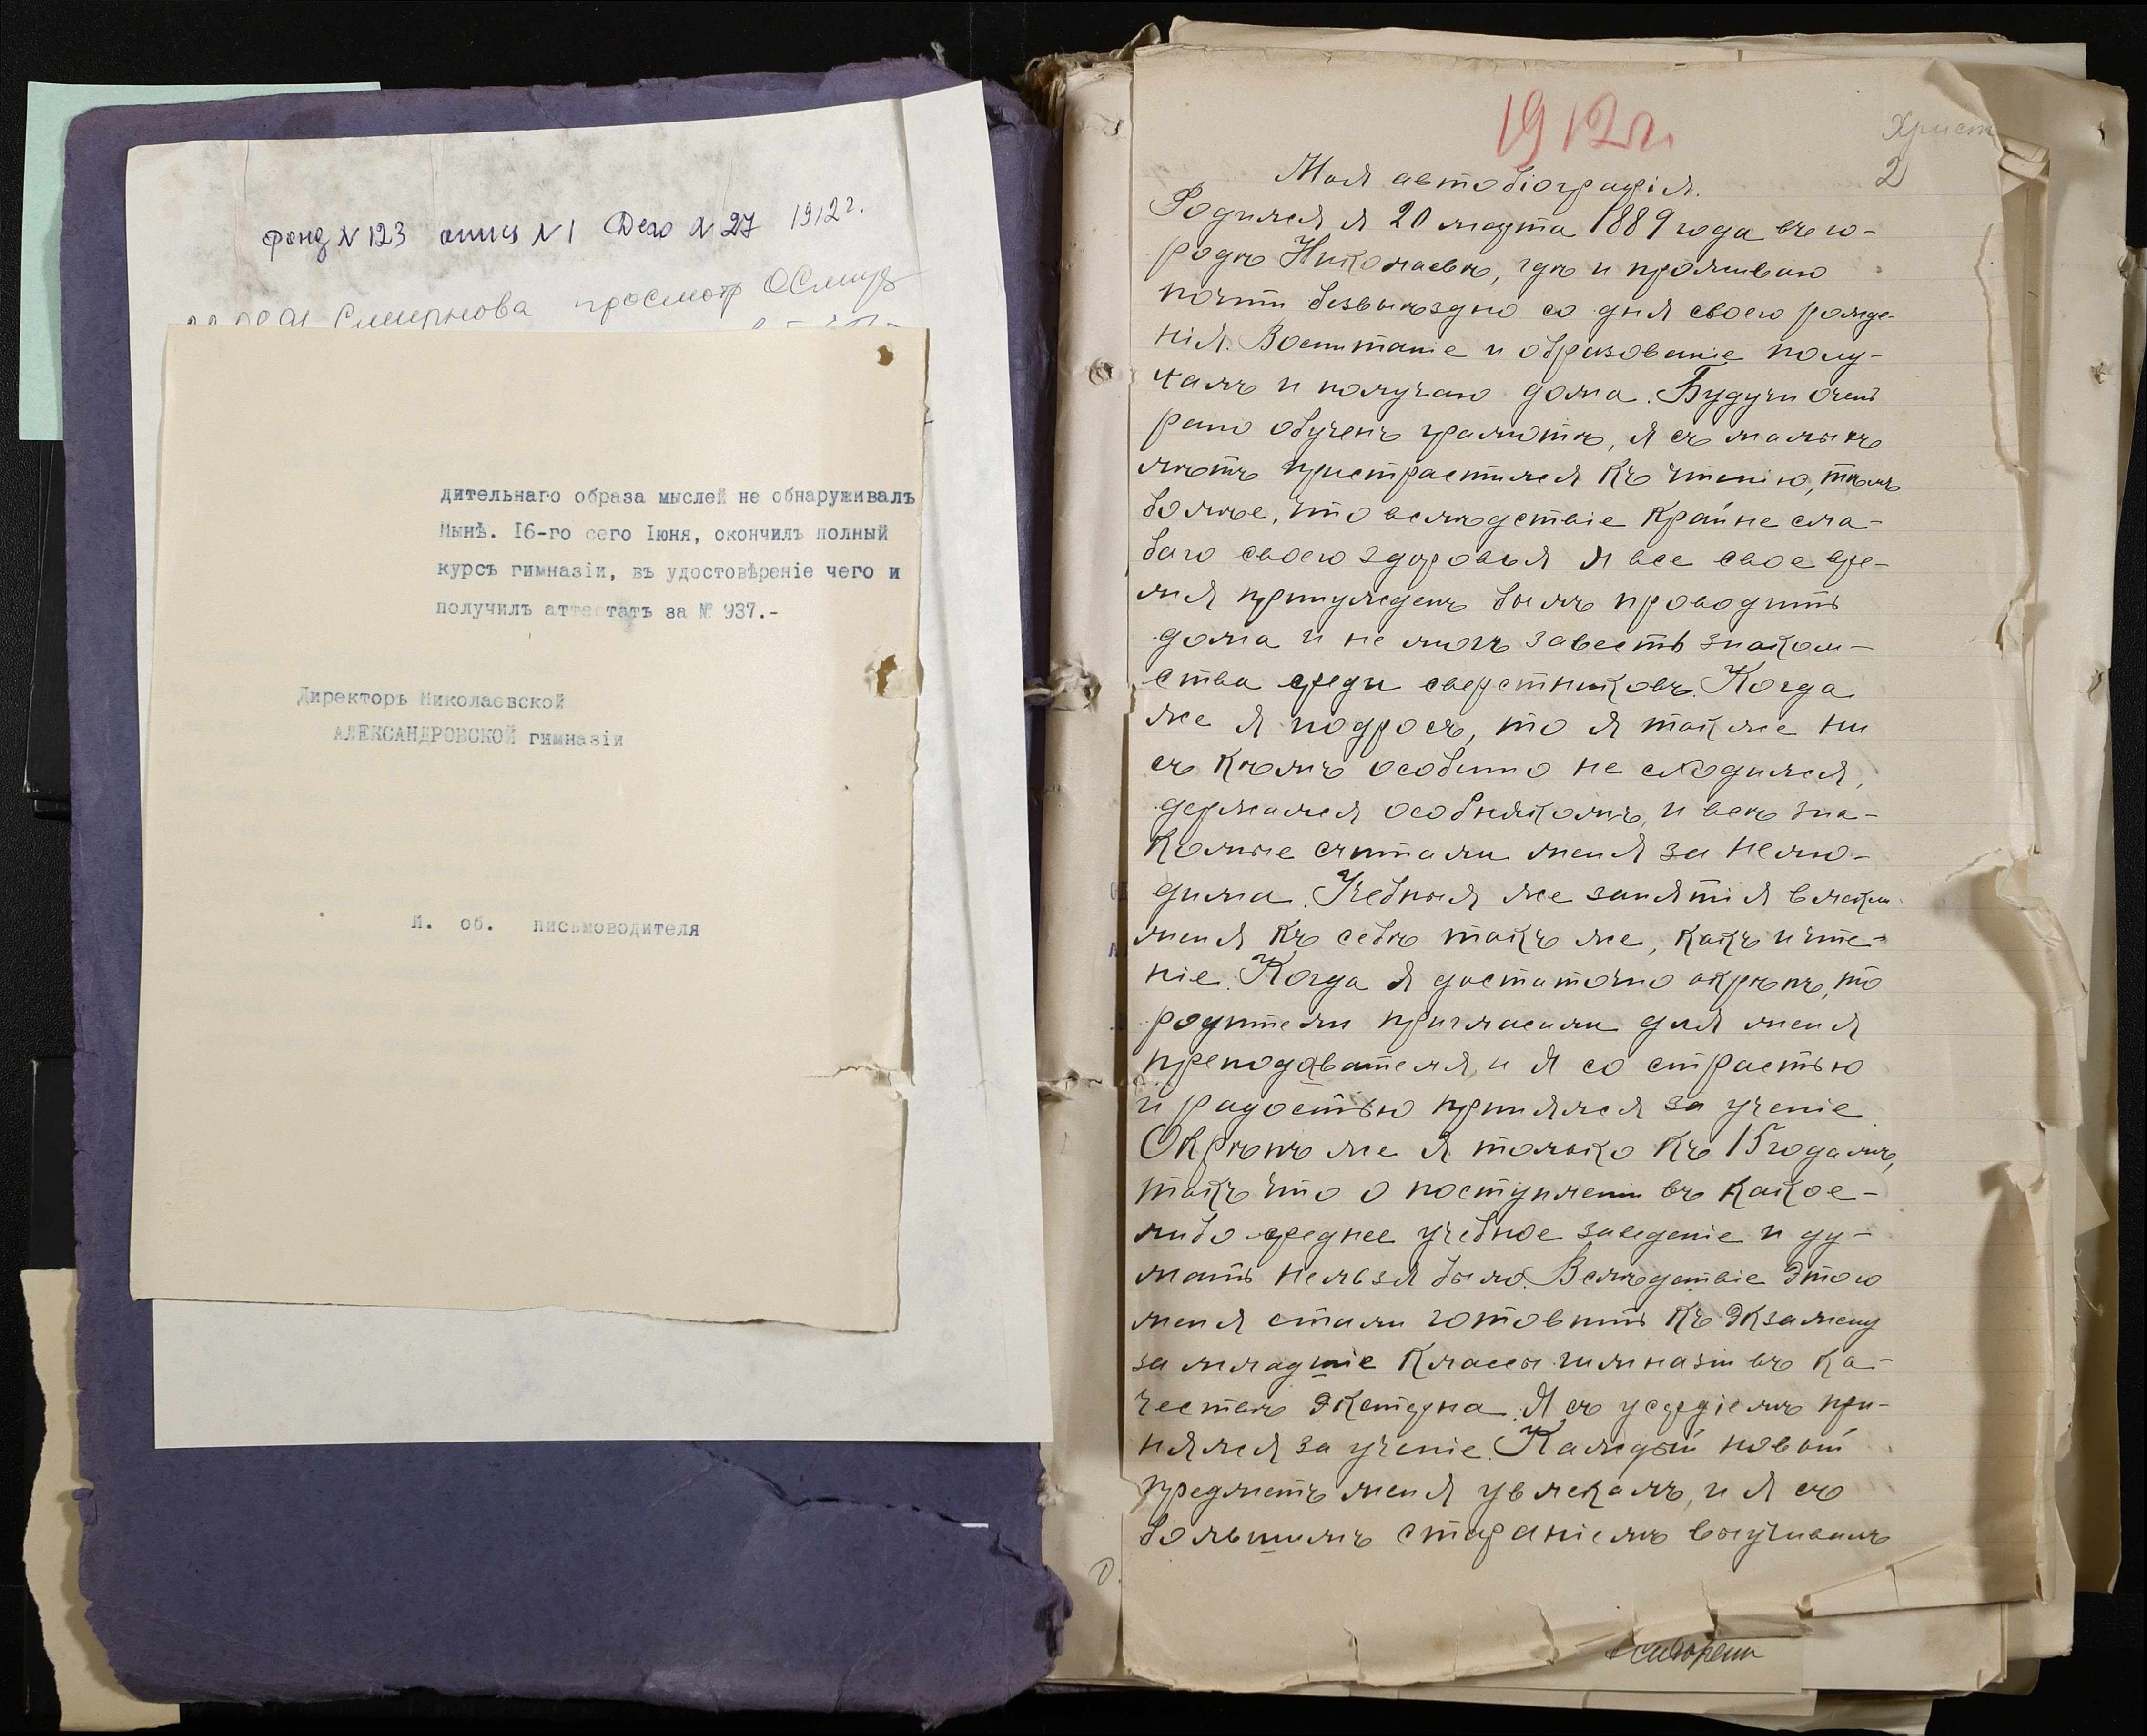 фонд N 123 опись N 1 Дело N 27 1912 г.
Смирнова просмотр
дительнаго образа мыслей не обнаруживалъ
Нынѣ. 16-го сего Іюня, окончилъ полный
курсъ гимназіи, въ удостовѣреніе чего и
получилъ аттестатъ за № 937.-
Директоръ Николаевской
АЛЕКСАНДРОВСКОЙ гимназіи
И. об. письмоводителя
1912 г.
Христ
2
Моя автобіографія.
Родился я 20 марта 1889 года въ го-
родѣ Николаевѣ, гдѣ и проживаю
почти безвыѣздно со дня своего рожде-
нія. Воспитаніе и образованіе полу-
чалъ и получаю дома. Будучи очень
рано обученъ грамотѣ, я съ малыхъ
лѣтъ пристрастился къ чтенію, тѣмъ
болѣе, что вслѣдствіе крайне сла-
баго своего здоровья я все свое вре-
мя принужденъ былъ проводить
дома и не могъ завесть знаком-
ства среди сверстниковъ. Когда
же я подросъ, то я также ни
съ кѣмъ особенно не сходился,
держался особнякомъ, и всѣ зна-
комые считали меня за нелю-
дима. Учебныя же занятія влекли
меня къ себѣ такъ же, какъ и чте-
ніе. Когда я достаточно окрѣпъ, то
родители пригласили для меня
преподавателя, и я со страстью
и радостью принялся за ученіе.
Окрѣпъ же я только къ 15 годамъ,
такъ что о поступленіи въ какое-
либо среднее учебное заведеніе и ду-
мать нельзя было. Вслѣдствіе этого
меня стали готовить къ экзамену
за младшіе классы гимназіи въ ка-
чествѣ экстерна. Я съ усердіемъ при-
нялся за ученіе. Каждый новый
предметъ меня увлекалъ, и я съ
большимъ стараніемъ выучивалъ